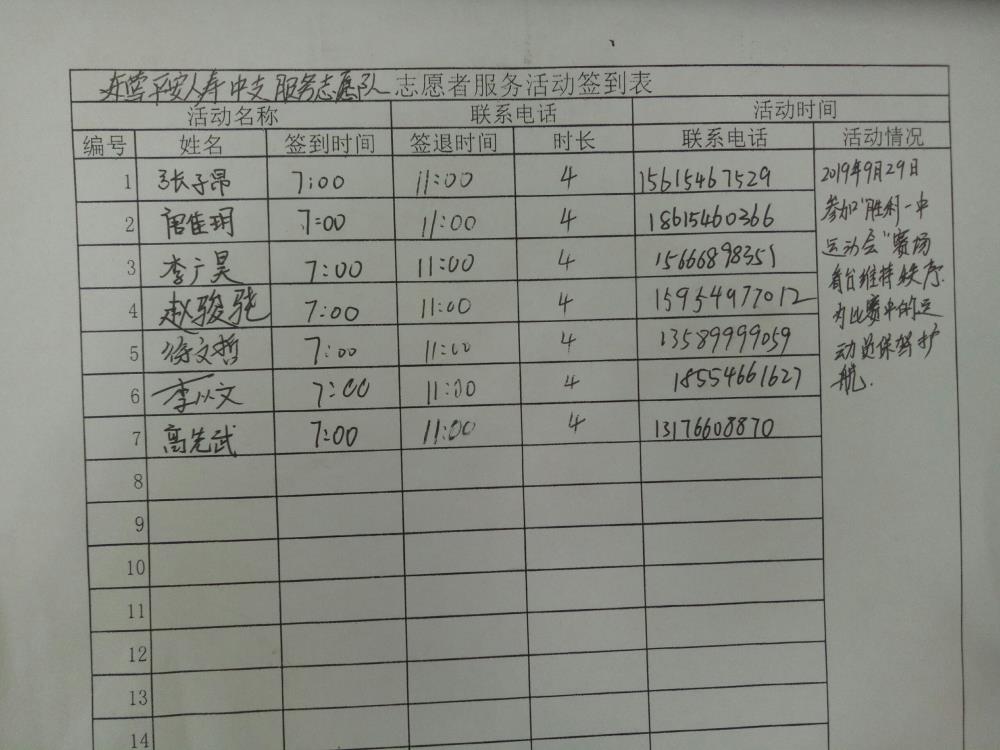 东营平安人寿中支服务志愿队 志愿者服务活动签到表
活动名称 联系电话 活动时间
编号 姓名 签到时间 签退时间 时长 联系电话 活动情况
1 张子昂 7:00 11:00 4 15615467529
2 唐隹玥 7:00 11:00 4 18615460366
3 李广昊 7:00 11:00 4 15666898351
4 赵骏驰 7:00 11:00 4 15954977012
5 徐文哲 7:00 11:00 4 13589999059
6 李从文 7:00 11:00 4 18554661627
7 高先武 7:00 11:00 4 13176608870
8
9
10
11
12
13
14
2019年9月29日
参加"胜利一中
运动会"赛场
看台维持秩序.
为比赛中的运
动员保驾护
航.